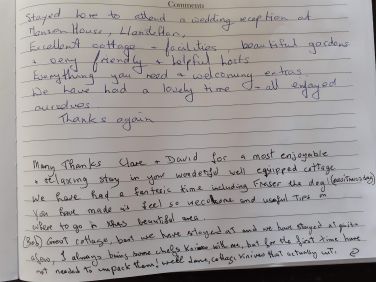 Comments
Stayed here to attend a wedding reception at
Mansion House, Llansteffan.
Excellent cottage - facilities, beautiful gardens
+ very friendly + helpful hosts
Everything you need + welcoming extras.
We have had a lovely time - all enjoyed
ourselves.
Thanks again
Many Thanks Clare + David for a most enjoyable
+ relaxing stay in your wonderful well equipped cottage
We have had a fantastic time including Fraser the dog!
You have made us feel so welcome and useful tips on
where to go in this beautiful area.
(Bob) Great cottage, best we have stayed at and we have stayed at quite
a few, I always bring some chefs knives with me, but for the first time have
not needed to unpack them! well done, cottage knives that actually cut.